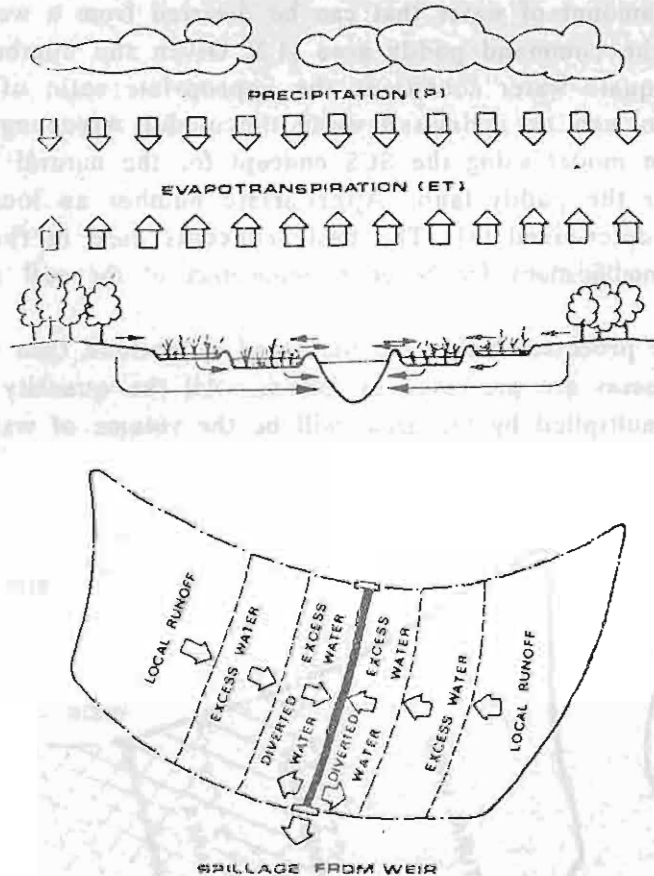 PRECIPITATION (P)
EVAPOTRANSPIRATION (ET)
LOCAL RUNOFF
EXCESS WATER
DIVERTED
WATER
EXCESS
WATER
DIVERTED
WATER
EXCESS
WATER
EXCESS WATER
LOCAL RUNOFF
SPILLAGE FROM WEIR